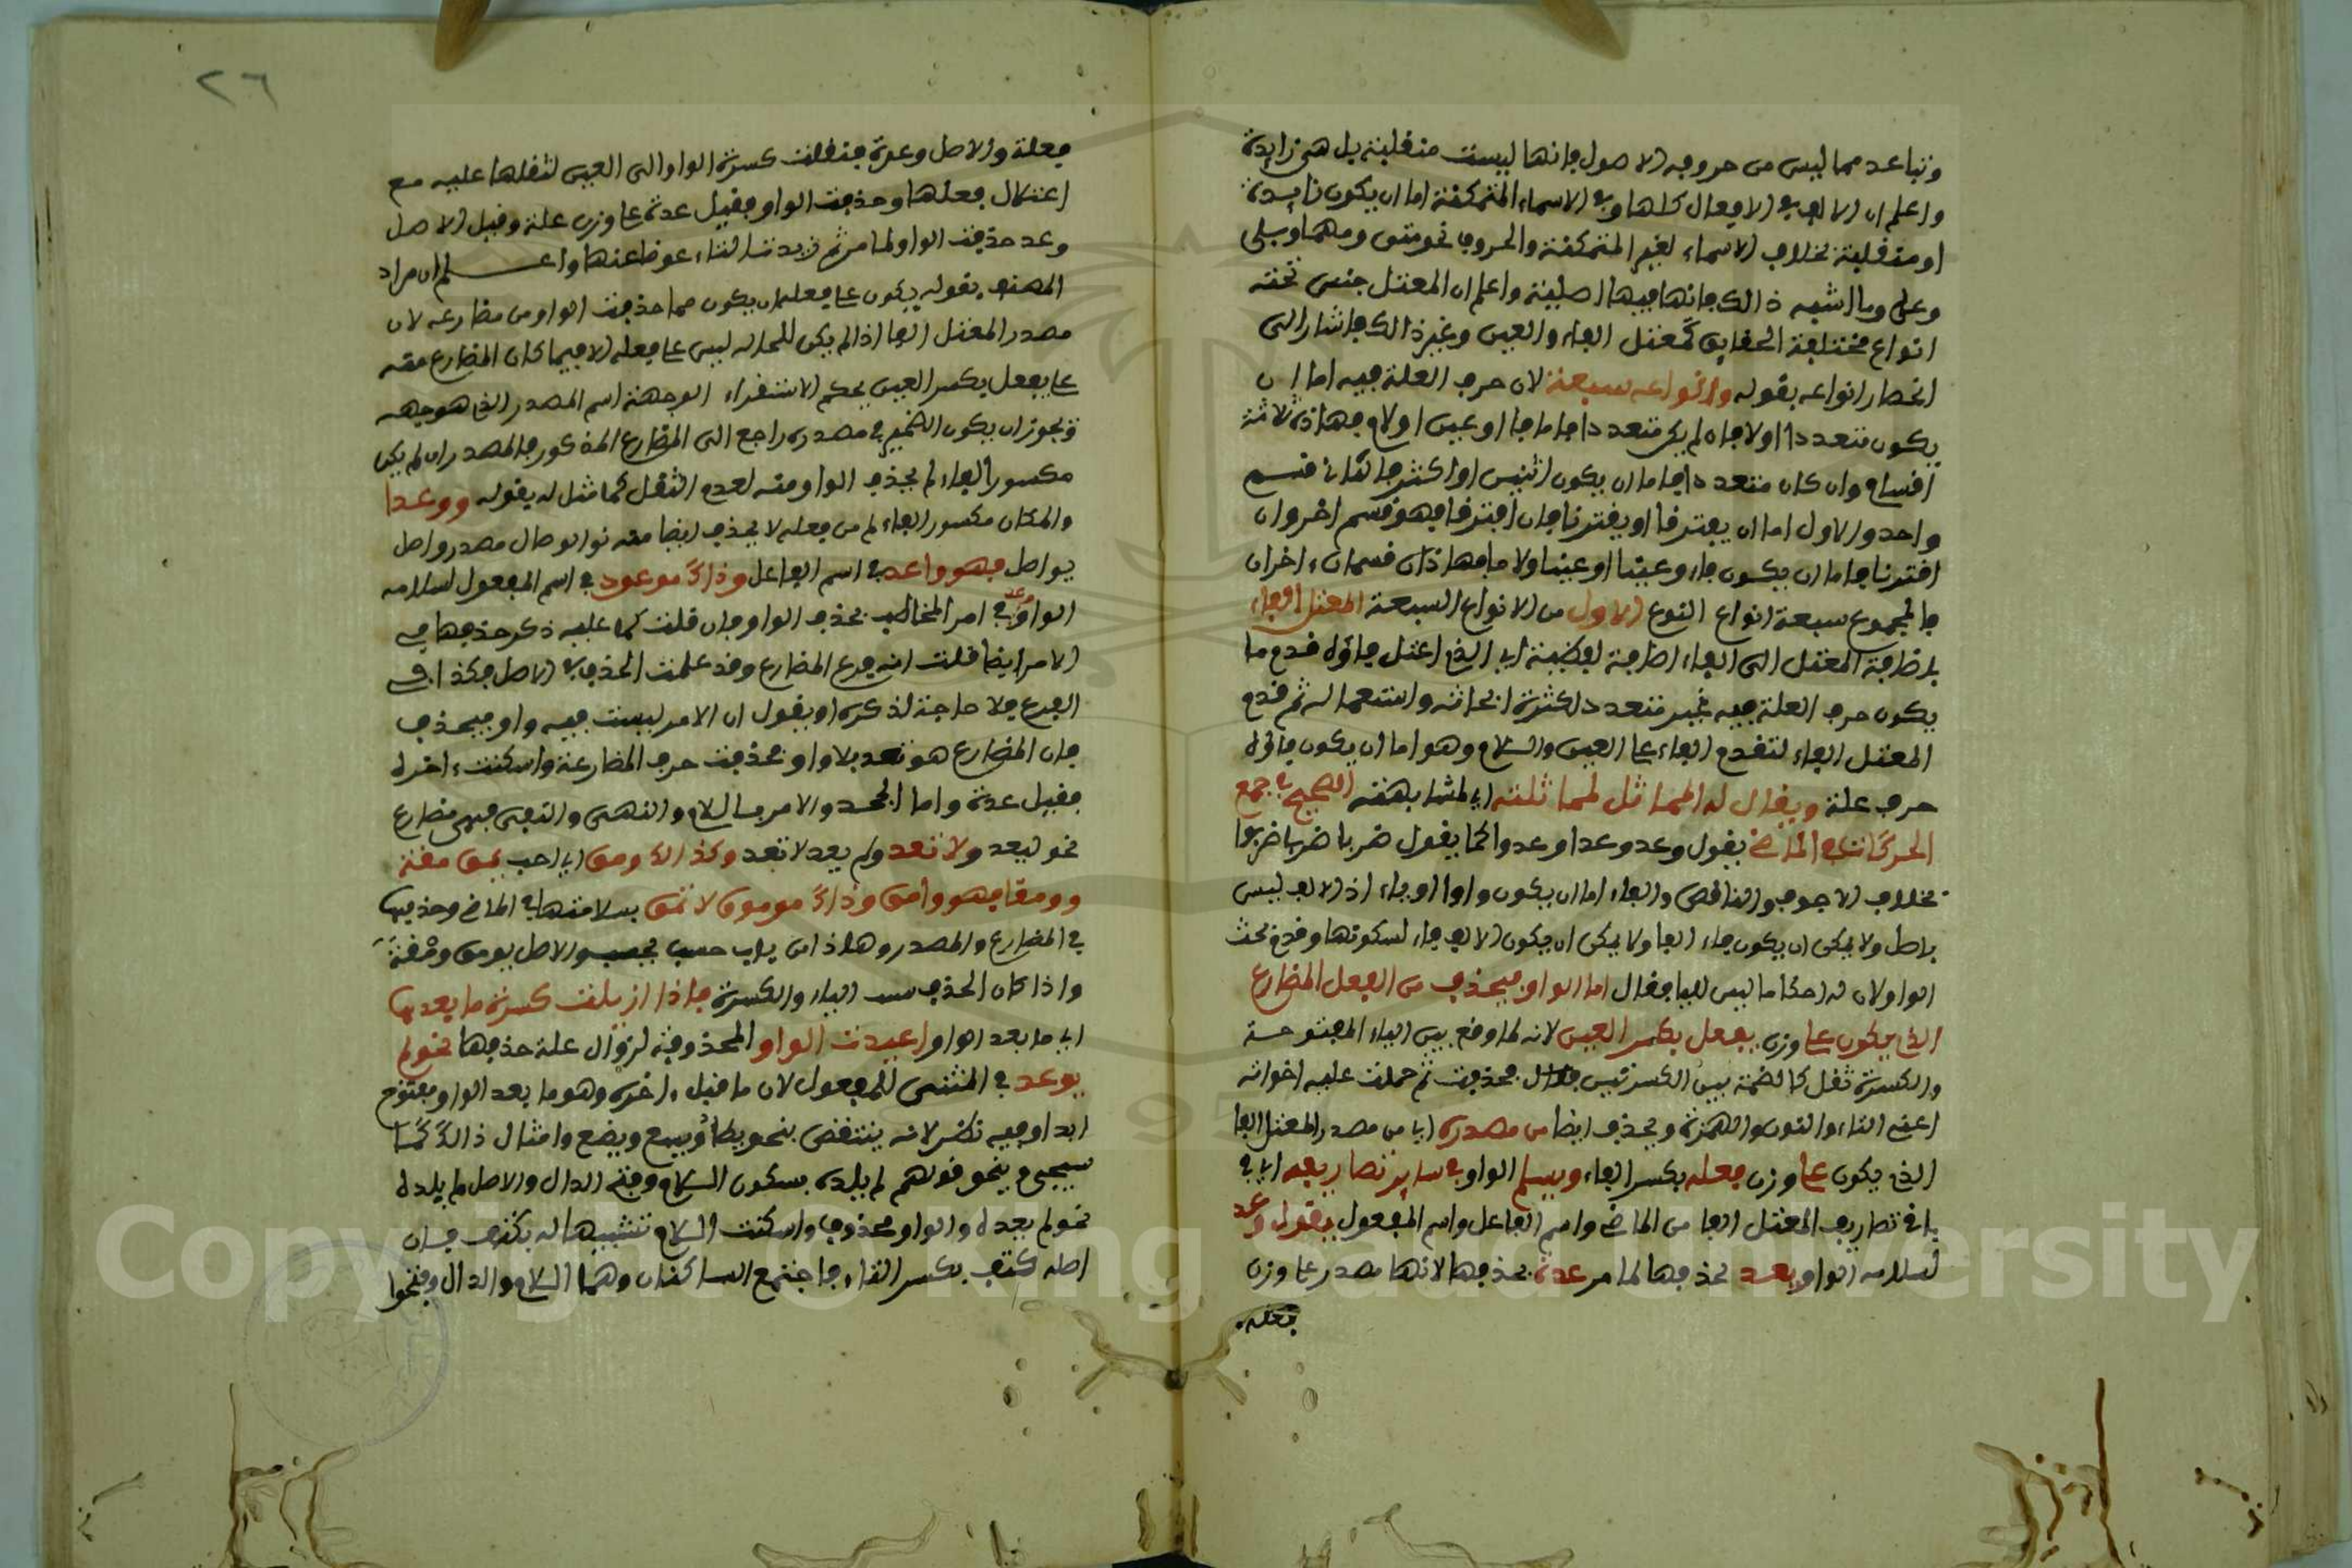 وتباعد مما ليس من حروفه الاصول فانها ليست منقلبة بل هي زايدة
واعلم ان الالف في الافعال كلها وفي الاسماء المتمكنة اما ان يكون زايدة
او منقلبة بخلاف الاسماء لغير المتمكنة والحروف نحو متى ومهما وبلى
وعلى وما اشبه ذالك فانها فيها اصلية واعلم ان المعتل جنس تحته
انواع مختلفة الحقايق كمعتل الفاء والعين وغير ذالك فاشار الى
انحصار انواعه بقوله وانواعه سبعة لان حرف العلة فيه اما ان
يكون متعددا اولا فان لم يكن متعددا فاما فا او عين او لام فهاذه ثلاثة
اقسام وان كان متعددا فاما ان يكون اثنين او اكثر فالثاني قسم
واحد والاول اما ان يفترقا او يقترنا فان افترقا فهو قسم اخر وان
اقترنا فاما ان يكون فاء وعينا او عينا ولاما فهاذان قسمان ءاخران
فالمجموع سبعة انواع النوع الاول من الانواع السبعة المعتل الفاء
باضافة المعتل الى الفاء اضافة لفظية اي الذي اعتل فاؤه قدم ما
يكون حرف العلة فيه غير متعدد لكثرة ابحاثه واستعماله ثم قدم
المعتل الفاء لتقدم الفاء على العين واللام وهو اما ان يكون فاؤه
حرف علة ويقال له المماثل لمماثلته اي لمشابهته الصحيح في جمع
الحركات في الماضي يقول وعد وعدا وعدوا كما يقول ضرب ضربا ضربوا
بخلاف الاجوف والناقص والفاء اما ان يكون واوا او ياء اذ الالف ليس
باصل ولا يمكن ان يكون فاء الفا ولا يمكن ان يكون الالف فاء لسكونها وقدم بحث
الواو لان له احكاما ليس للياء فقال اما الواو فيحذف من الفعل المضارع
الذي يكون على وزن يفعل بكسر العين لانه لما وقع بين الياء المفتوحة
والكسرة ثقل كالضمة بين الكسرتين فحذفت ثم حملت عليه اخواته
اعني التاء والنون والهمزة ويحذف ايضا من مصدره اي من مصدر المعتل الفا
الذي يكون على وزن فعله بكسر الفاء ويسلم الواو في ساير تصاريفه اي في
باقي تصاريف المعتل الفا من الماضي واسم الفاعل واسم المفعول بقول وعد
لسلامه الواو يعد بحذفها لما مر عدة بحذفها لانها مصدر على وزن
فعله
٢٦
فعلة والاصل وعدة فنقلت كسرة الواو الى العين لثقلها عليه مع
اعتلال فعلها وحذفت الواو فقيل عدة على وزن علة وقيل الاصل
وعد حذفت الواو لما مر ثم زيدت التاء عوضا عنها واعلم ان مراد
المصنف بقوله يكون على فعله ان يكون مما حذفت الواو من مضارعه لان
مصدر المعتل الفا اذا لم يكن للحالة ليس على فعله الا فيما كان المضارع منه
على يفعل بكسر العين بحكم الاستقراء الوجهة اسم المصدر الذي هو جهه
ويجوز ان يكون الضمير في مصدره راجع الى المضارع المذكور فالمصدر ان لم يكن
مكسور الفاء لم يحذف الواو منه لعدم الثقل كما مثل له بقوله ووعدا
والمكان مكسور الفاء لم من فعله لا يحذف ايضا منه نو الوصال مصدر واصل
يواصل فهو واعد في اسم الفاعل وذاك موعود في اسم المفعول لسلامه
الواو وعد في امر المخاطب بحذف الواو فان قلت كما عليه ذكر حذفها في
الامر ايضا قلت انه فرع المضارع وقد علمت الحذف في الاصل فكذا في
الفرع فلا حاجة لذكره او بقول ان الامر ليست فيه واو فيحذف
فان المضارع هو تعد بلا واو فحذفت حرف المضارعة واسكنت ءاخره
فقيل عدة واما الجحد والامر باللام والنهي والنفي فهي مضارع
نحو ليعد ولا تعد ولم يعد لا تعد وكذالك ومق اي احب يمق مقة
وومقا فهو وامق وذاك موموق لا تمق بسلامتها في الماضي وحذفها
في المضارع والمصدر وهاذا من باب حسب يحسب والاصل يومق ومقة
واذا كان الحذف الياء والكسرة فاذا ازيلت كسرة ما بعدها
اي ما بعد الواو اعيدت الواو المحذوفة لزوال علة حذفها نحو لم
يوعد في المثنى للمفعول لان ما قبل ءاخره وهو ما بعد الواو مفتوح
ابدا وفيه نظر لانه ينتقض بنحو يطأ ويسع ويضع وامثال ذالك كما
سيجيء بنحو قولهم لم يلده بسكون اللام وفتح الدال والاصل لم يلده
نحو لم يعده والواو محذوف واسكنت اللام تشبيها له بكتف فان
اصله كتف بكسر التاء فاجتمع الساكنان وهما اللام والدال وفتحوا
Copyright © King Saud University